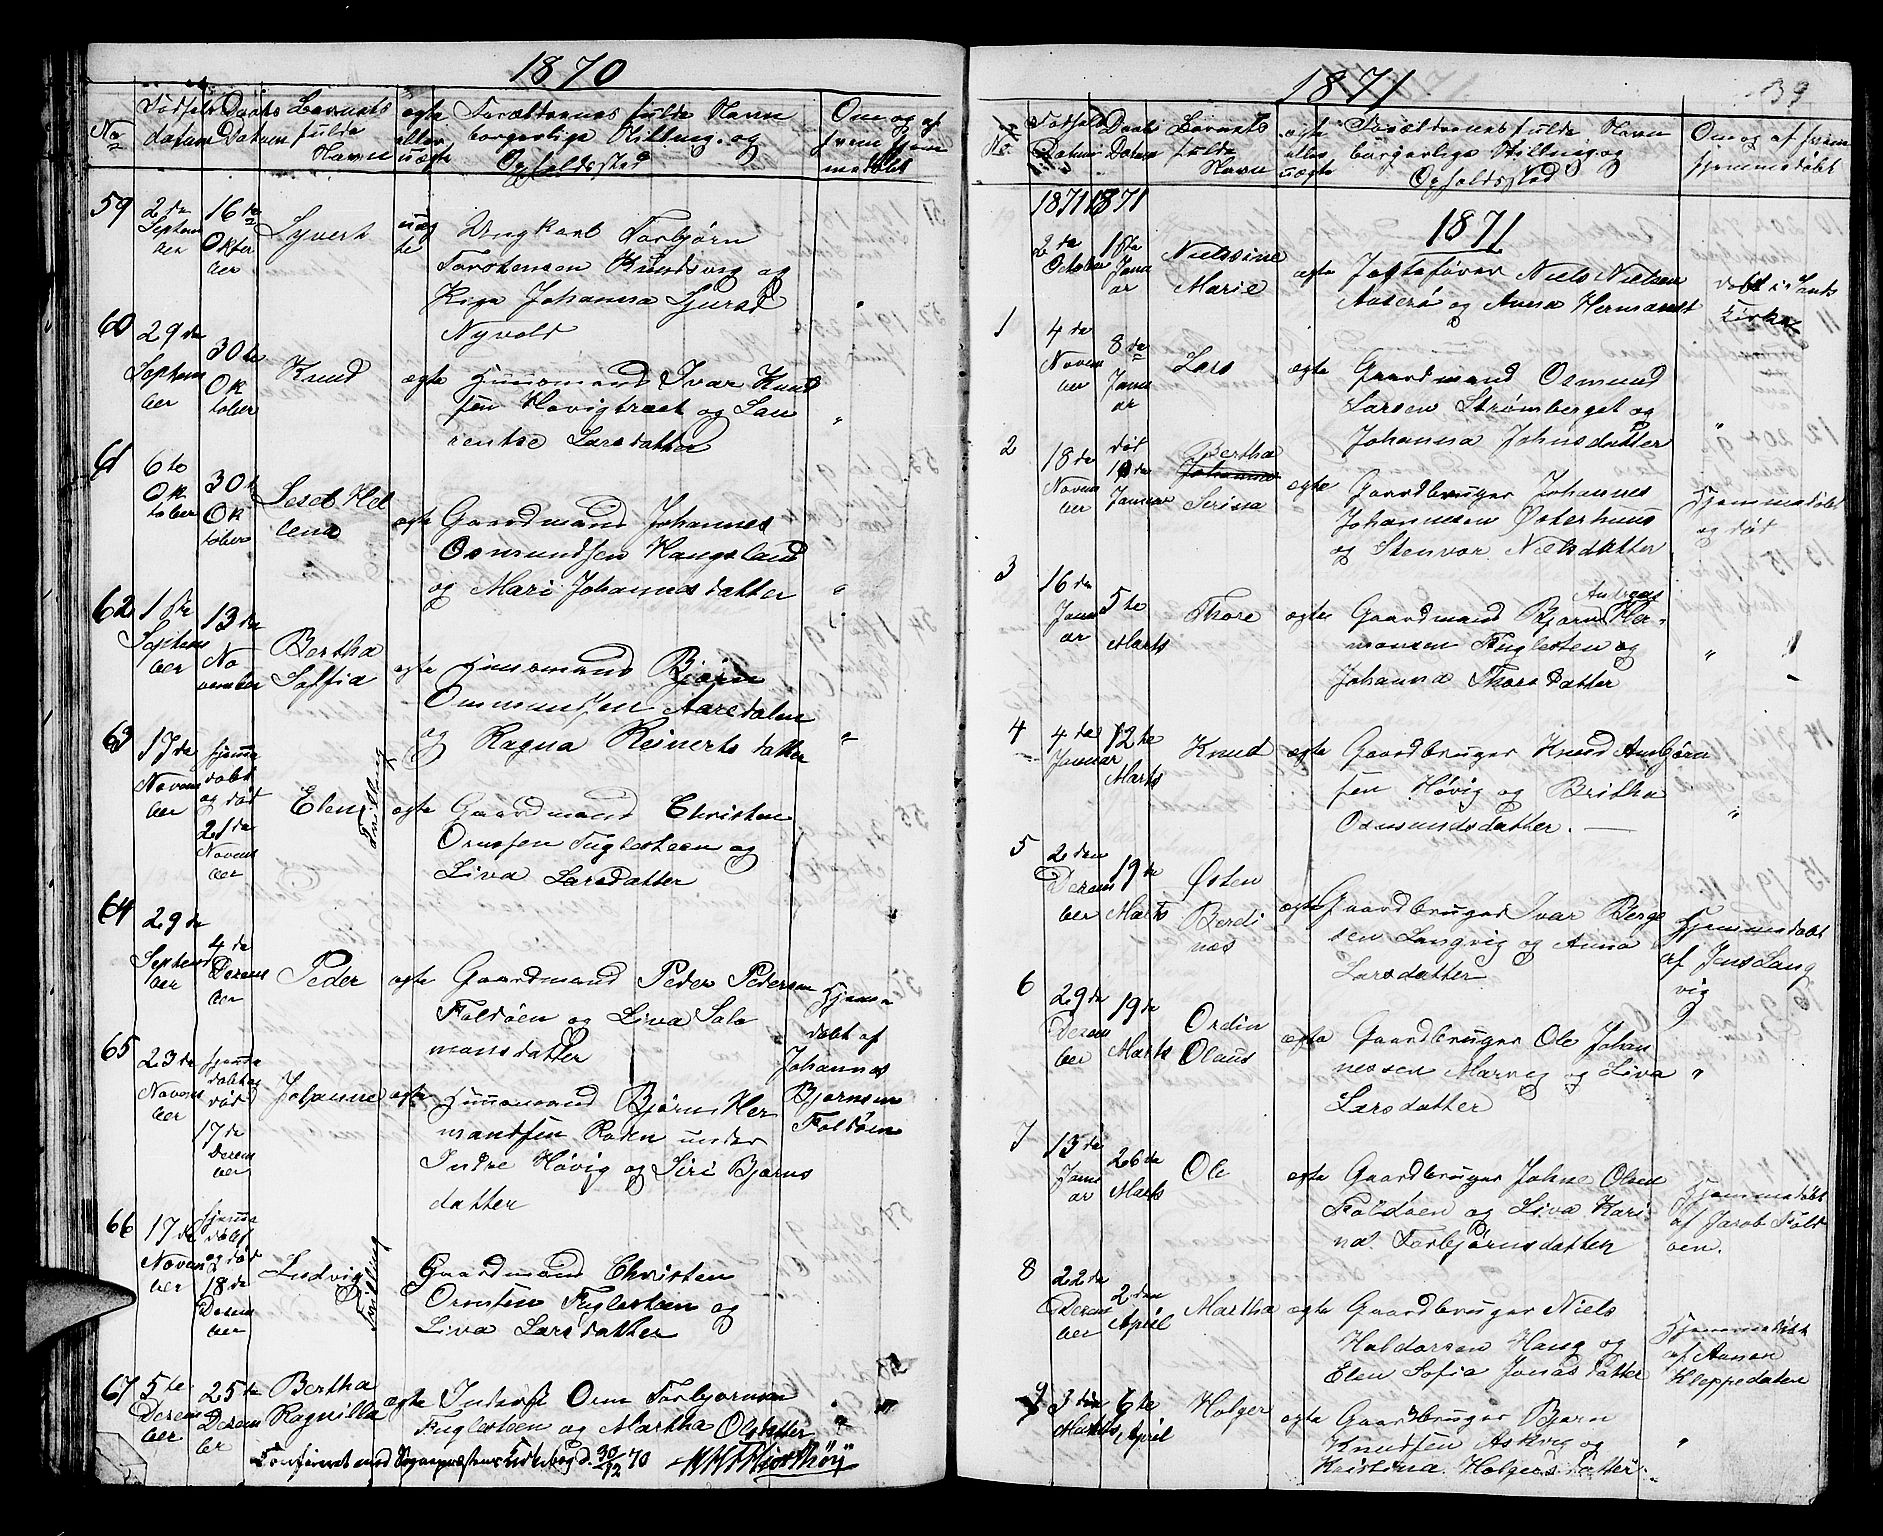 1870
No
Fødsels datum
Daabs Datum
Barnets fulde Navn
ægte eller uægte
Forældrenes fulde Navn borgerlige Stilling og Opholdssted
Om og af hvem hjemmedøbt
59
2 de September
16 de October
Syvert
uægte
Ungkarl Torbjørn
Torstensen Knudsvig og
Pige Johanna Sjursd
Nyvold
60
29 de September
30 te Oktober
Knud
ægte
Huusmand Ivar Knud
sen Høvigtræet og Lau
rentse Larsdatter
"
61
6 te Oktober
30 te Oktober
Leset Hellena
ægte
Gaardmand Johannes
Osmundsen Haugsland
og Mari Johannesdatter
"
62
1 ste September
13 de November
Bertha Soffia
ægte
Huusmand Bjørn
Ommundsen Aaredalen
og Ragna Reinertsdatter
"
63
17 de November
hjemmedøbt og død 21 de November
Elen
Tvilling
ægte
Gaardmand Christen
Ormsen Fuglesteen og
Liva Larsdatter
64
29 de September
4 de Decem ber
Peder
ægte
Gaardmand Peder Pedersen
Foldøen og Liva Salo
monsdatter
Hjemmedøbt af
Johannes
Bjørnsen
Foldøen
65
23 de November
hjemmedøbt og død 17 de Decem ber
Johanne
ægte
Huusmand Bjørn Her
mandsen Roden under
Indre Høvig og Siri Bjørns
datter
66
17 de November
hjemmedøbt og død 18 de Decem ber
Ludvig
Tvilling
Gaardmand Christen
Ormsen Fuglesteen og
Liva Larsdatter
67
5 te Decem ber
25 de Decem ber
Bertha Ragnilla
ægte
Inderst Orm Torbjørnsen
Fuglesteen og Martha Olsdatter
"
Confereret med Sognepræstens Kirkebog d. 30/12 70
1871
39
No
Fødsels Datum
Daabs Datum
Barnets fulde Navn
ægte eller uægte
Forældrenes fulde Navn borgerlige Stilling og Opholdssted
Om og af hvem hjemmedøbt
1871 1871
1871
2 de October
18 de Januar
Nielsine Marie
ægte
Jægtefører Niels Nielsen
og Anna Hermansdt
døbt i Sands Kirke
1
4 de November
8 de Januar
Lars
ægte
Gaardmand Osmund
Larsen Strømberget og
Johanna Johnsdatter
"
2
18 de November
død 10 de Januar
Bertha
Johanna
Serina
ægte
Gaardbruger Johannes
Johannesen Østerhuus
og Stenvor Nielsdatter
Hjemmedøbt
og død
3
16 de Januar
5 te Marts
Thore
ægte
Gaardmand Bjørn Her-
mansen Fuglesten og
Johanna Thorsdatter
"
4
4 de Januar
12 te Marts
Knud
ægte
Gaardbruger Knud Anbjørn
sen Høvig og Britha
Osmundsdatter.
"
5
2 den Decem ber
19 de Marts
Østen Berdines
ægte
Gaardbruger Ivar Berge
sen Langvig og Anna
Larsdatter
Hjemmedøbt
af Jens Lang
vig
6
29 de Decem ber
19 de Marts
Ordin Olaus
ægte
Gaardbruger Ole Johan
nessen Marvig og Liva
Larsdatter
"
7
13 de Januar
26 de Marts
Ole
ægte
Gaardbruger Johne Olsen
Foldøen og Liva Kari
na Torbjørnsdatter
Hjemmedøbt
af Jacob Fold
øen.
8
22 de Decem ber
2 den April
Martha
ægte
Gaardbruger Niels
Haldorsen Haug og
Elen Sofia Jonasdatter
Hjemmedøbt
af Aanen
Kleppedalen
9
3 die Marts
6 te April
Holger
ægte
Gaardbruger Bjørn
Knudsen Askvig og
Kristina Holgersdatter
"